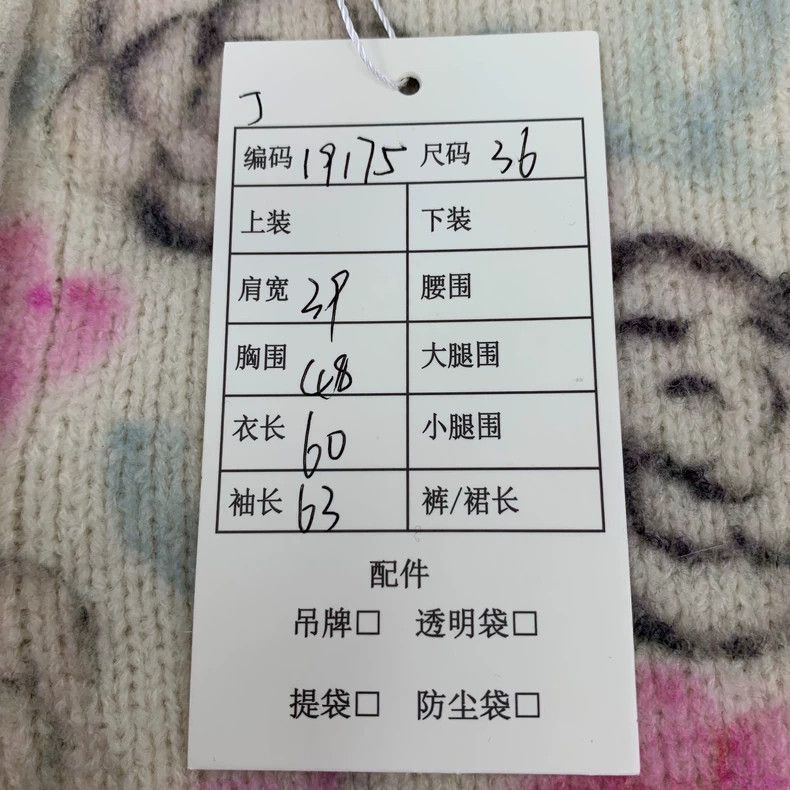 J
编码 19175 尺码 36
上装 下装
肩宽 39 腰围
胸围 48 大腿围
衣长 60 小腿围
袖长 63 裤/裙长
配件
吊牌□ 透明袋□
提袋□ 防尘袋□